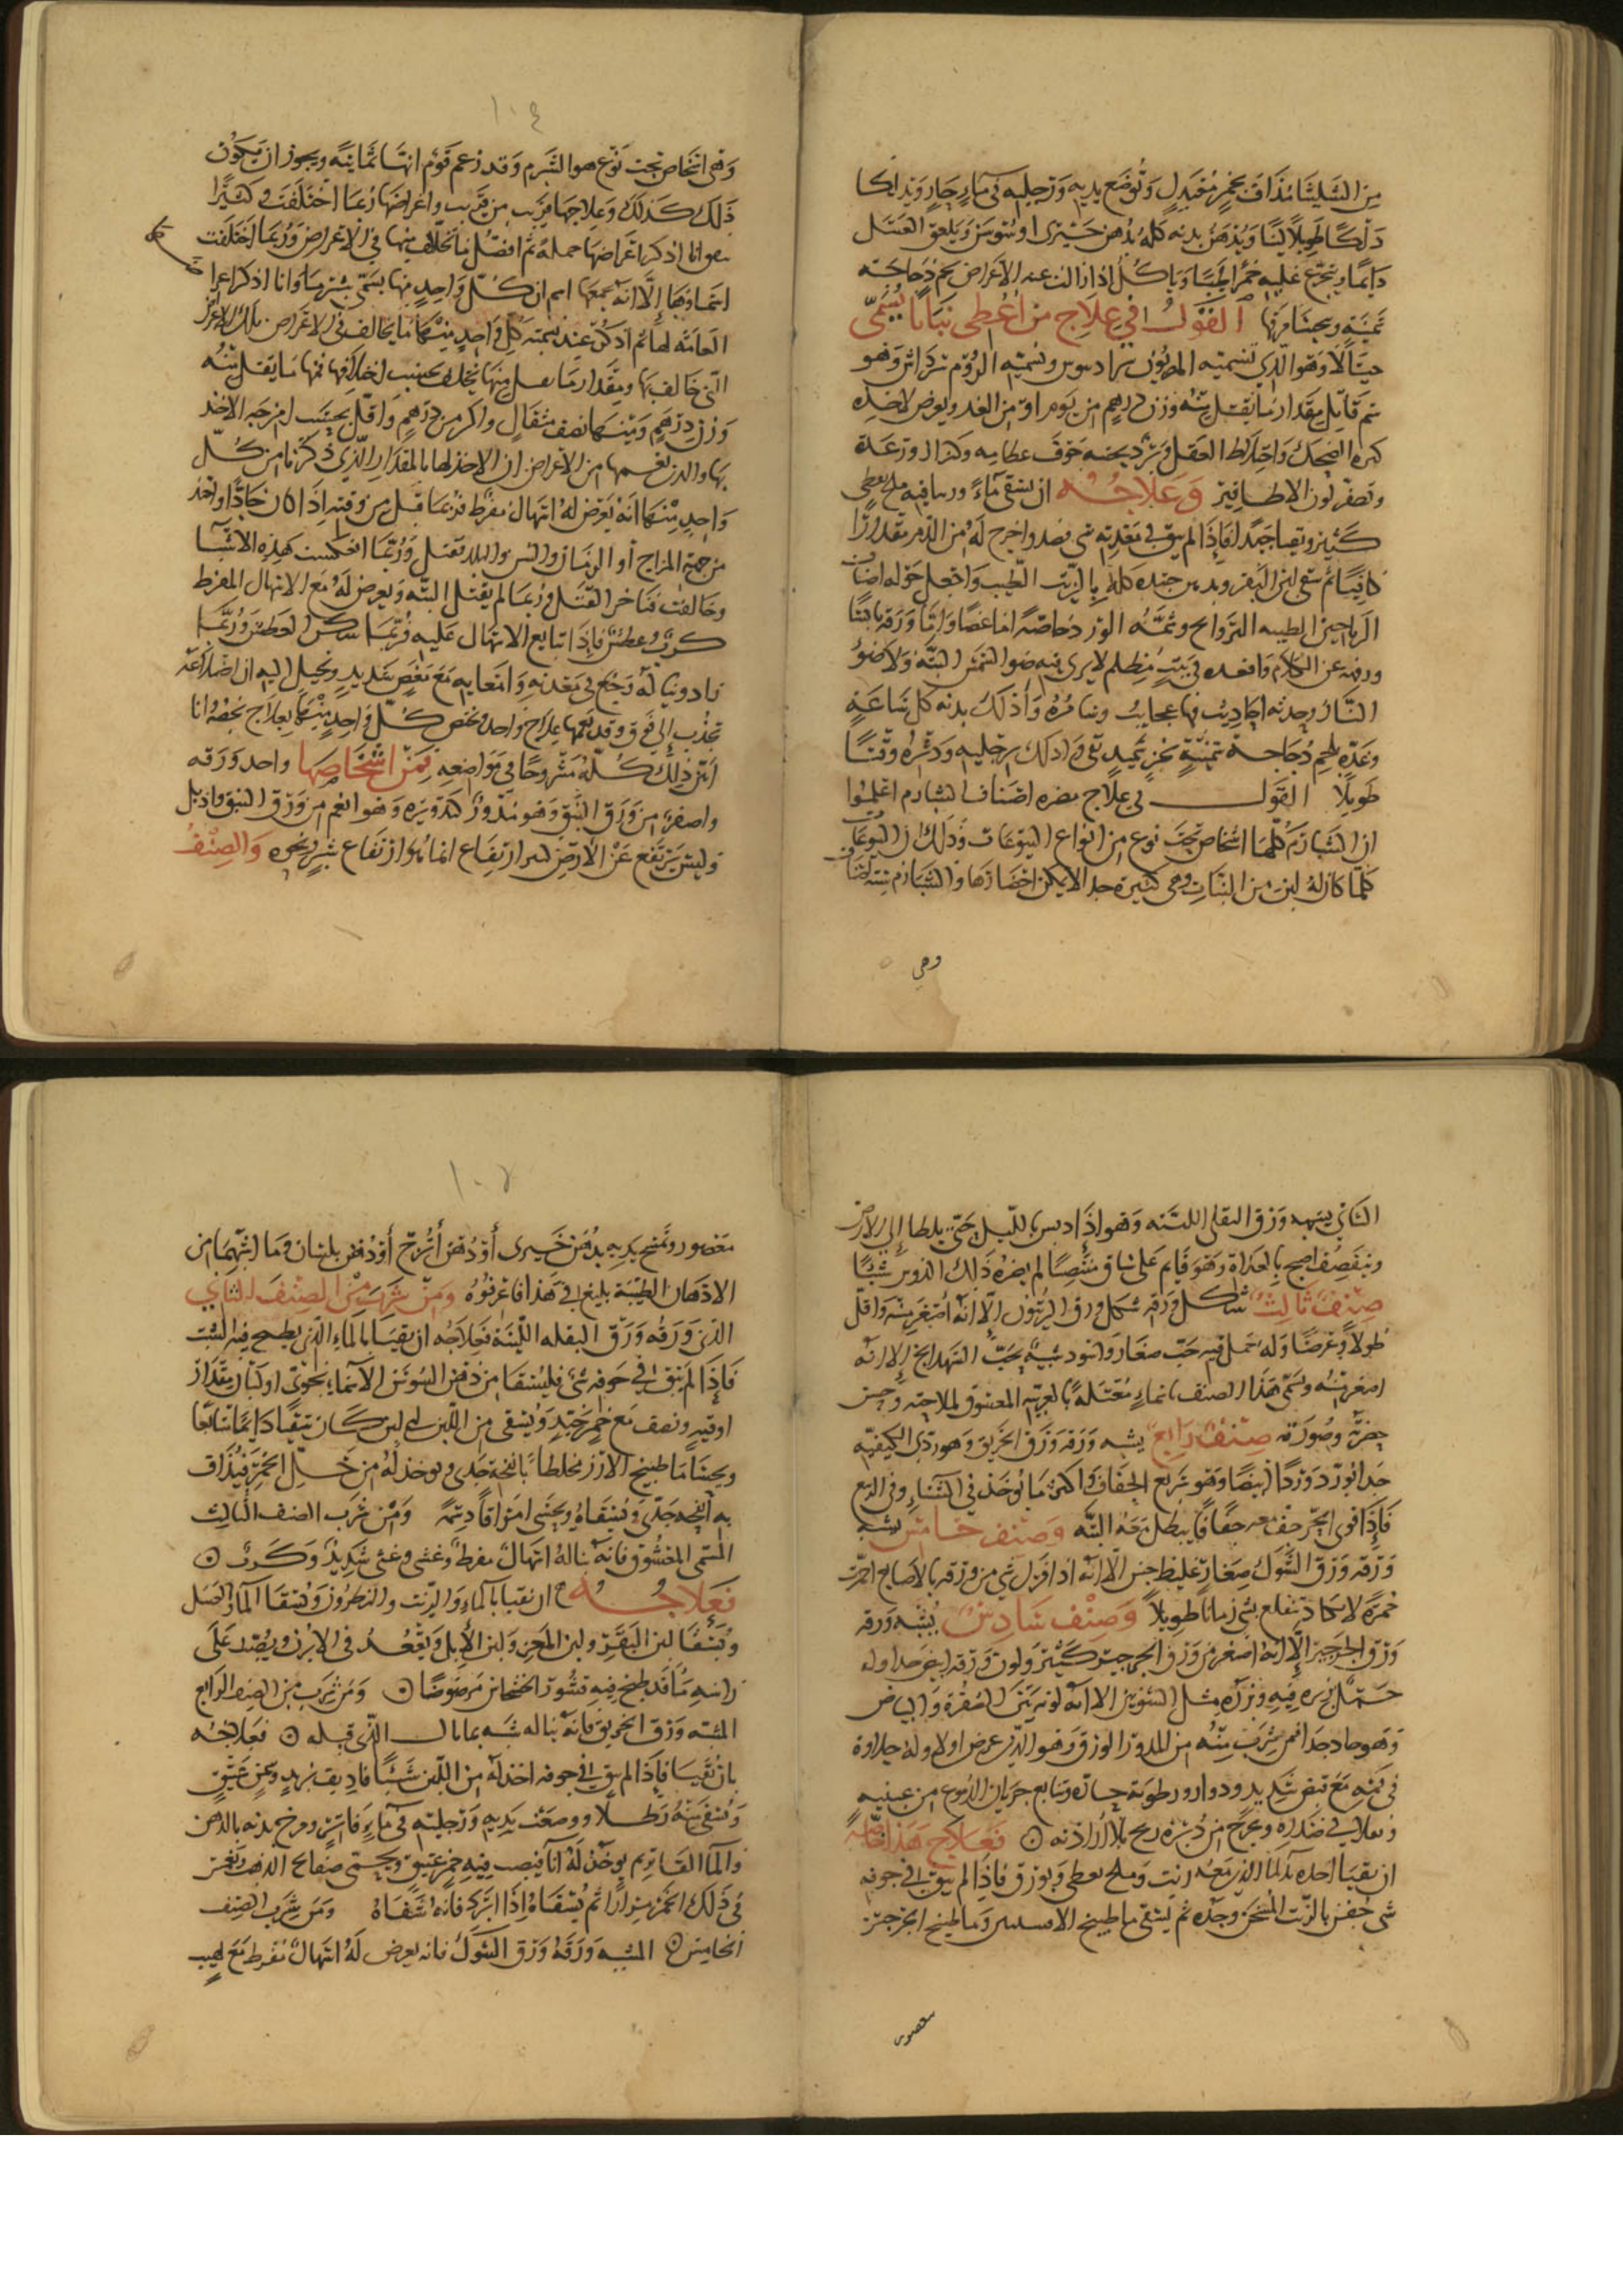 من الشليثا مذاف بخمر معتدل وتوضع يديه ورجليه في ماء حار ويدلكا
دلكا طويلا لينا ويدهن بدنه كله بدهن خيرى او سوسن ويلعق العسل
دايما ويتجرع عليه خمرا طيبا وياكل اذا زالت عنه الاعراض لحم دجاجة
ثمينة ويحسا مرقها القول في علاج من اعطى نباتا يسمى
وهو الذي تسميه المصريون وتسميه الروم وهو
سم قاتل مقدار ما يقتل منه وزن درهم من يوم او من الغد ويعرض لاخذه
كثرة الضحك واختلاط العقل وبرد يحسه جوف عظامه وكزاز ورعدة
وتصفر لون الاظافير وعلاجه ان يسقى ماء وربما فيه ملح
كثير ويقيا جيدا فاذا لم يبق في معدته شى فصد واخرج له من الدم مقدارا
كافيا ثم سقى لبن البقر ويدهن جسده كله بالزيت الطيب واجعل حوله اصناف
الرياحين الطيبه الروايح وشمه الورد خاصة اما غضا واما ورقه يابسا
عن الكلام واقعده في بيت مظلم لا يرى فيه ضو الشمس البته ولا ضو
النار وحدثه احاديث فيها عجايب ومره وادلك بدنه كل ساعة
وغده بلحم دجاجة ثمينة وادلك رجليه ودثره وقتا
طويلا القول في علاج مضره اصناف الشبارم اعلموا
ان الشبارم كلها اشخاص تحت نوع من انواع اليتوعات وذلك ان اليتوعات
كلما كان له لبن من النبات وهى كثيرة جدا لا يمكن احصارها والشبارم ستة اصناف
وهي
١٠٤
وهى اشخاص تحت نوع هو الشبرم وقد زعم قوم انها ثمانية ويجوز ان يكون
ذلك كذلك وعلاجها قريب من قريب واعراضها ربما اختلفت كثيرا
وانا اذكر اعراضها جملة ثم افصل ما تخالف منها في الاعراض وربما اختلفت
اسماوها الا انه يجمعها اسم ان كل واحد منها يسمى شبرما وانا اذكر اعرا
العامة لها ثم اذكر عند تسمية كل واحد منها ما يخالف في الاعراض تلك الاعراض
التى خالف بها ومقدار ما يقتل منها يختلف بحسب اختلافها فمنها ما يقتل منه
وزن درهم ومنها نصف مثقال واكثر من درهم واقل بحسب امزجه الاخذ
بها والذى يعمها من الاعراض ان الاخذ لها بالمقدار الذي ذكرنا من كل
واحد منها انه يعرض له اسهال مفرط فربما قتل من وقته اذا كان حادا واخذ
من جهة المزاج أو الزمان والسن والبلد يقتل وربما انعكست هذه الاشيا
وخالفت فتاخر القتل وربما لم يقتل البته ويعرض له مع الاسهال المفرط
كرب وعطش فاذا تتابع الاسهال عليه فربما سكن العطش وربما
زاد وينا له وجع في معدته وامعايه مع مغص شديد ويخيل اليه ان اضلاعه
تجذب إلى فوق وقد يعمها علاج واحد ويختص كل واحد منها بعلاج يخصه وانا
ابين ذلك كله مشروحا في مواضعه فمن اشخاصها واحد ورقه
واصغر من ورق النبق وهو مدور كتدويره وهو انعم من ورق النبق واذبل
وليس يرتفع عن الارض كبير ارتفاع انما يكون ارتفاع شبر ونحوه والصنف
الثاني يشبه ورق البقله اللينه وهو اذا دبس بالليل حتى يلطا إلى الارض
وينقصف اصبح بالغداة وهو قايم على ساق منتصبا لم يضره ذلك الدوس شيئا
صنف ثالث شكل ورقه شكل ورق الزيتون إلا انه اصغر منه واقل
طولا وعرضا وله حمل فيه حب صغار واسود شبيه بحب الشهدانج إلا انه
اصغر منه ويسمى هذا الصنف باسماء مفتعلة بالعربية المعشوق لملاحته وحسن
خضرته وصورته صنف رابع يشبه ورقه ورق الخربق وهو ردى الكيفيه
جدا يورد وردا ابيضا وهو سريع الجفاف واكثر ما يوخذ في الشتاء وفي الربيع
فاذا قوى الحر جف معه جفافا يبطل معه البته وصنف خامس يشبه
ورقه ورق الشوك صغار غليظ خشن الا انه اذا فرك شي من ورقه بالاصابع احمرت
حمرة لا يكاد تنقلع بشي زمانا طويلا وصنف سادس يشبه ورقه
ورق الجرجير الا انه اصغر من ورق الجرجير كثير ولون ورقه اغبر جدا وله
حمل بزره فيه وبزره مثل الشونيز الا انه لونه بين الصفرة والبياض
وهو حاد جدا فمن شرب منه من المدور الورق وهو الذي عرض اولا وله حلاوة
في فمه مع قبض شديد ودوار ورطوبة جارة وتتابع جريان الدموع من عينيه
وثقلا في صدره وخرج من دبره ريح بلا ارادته فعلاج هذا
ان يقيا الحار بالما الذي معه زيت وملح وبورق فاذا لم يبق في جوفه
شى حقن بالزيت المسخن وحده ثم يسقى ما طبيخ الافسنتين وما طبيخ الجرجير
معصور
١٠٧
معصور وتمسح يديه بدهن خيرى أو دهن أترج أو دهن بلسان وما اشبهها من
الادهان الطيبة بليغ في هذا فاعرفوه ومن شرب من الصنف الثاني
الذى ورقه ورق البقله اللينة فعلاجه ان يقيا بالماء الذي يطبح فيه الشبت
فاذا لم يبق في جوفه شى فليسقا من دهن السوسن الاسمانجوني او لبان مقدار
اوقيه ونصف مع خمر جيد ويسقى من اللبن اى لبن كان سقيا دايما متتابعا
ويحسا ما طبيخ الارز مخلطا بانفحة جدى ويوخذ له من خل الخمر فيذاف
به انفحه جدى ويسقاه ويحسى امراقا دسمه ومن شرب الصنف الثالث
المسمى المعشوق فانه يناله اسهال مفرط وغشى وغثى شديد وكرب
فعلاجه ان يقيا بالماء والزيت والنطرون ويسقا الماء والعسل
ويسقا لبن البقر ولبن المعز ولبن الابل ويقعد في الابزن ويصب على
راسه ما قد طبخ فيه قشور الخشخاش مرضوضا ومن شرب من الصنف الرابع
المشبه ورق الخربق فانه يناله شبه بما نال الذي قبله فعلاجه
بان يقيا فاذا لم يبق في جوفه اخذ له من اللبن شيئا فاديف بزبد وسمن عتيق
ويسقى منه رطلا ووضعت يديه ورجليه في ماء فاتر ومرخ بدنه بالدهن
والما الفاتر ثم يوخذ له انا فيصب فيه خمر عتيق ويحمى صفايح الذهب وتغمس
في ذلك الخمر مرارا ثم يسقاه اذا ابرد فانه شفاه ومن شرب الصنف
الخامس المشبه ورقه ورق الشوك فانه يعرض له اسهال مفرط مع لهيب